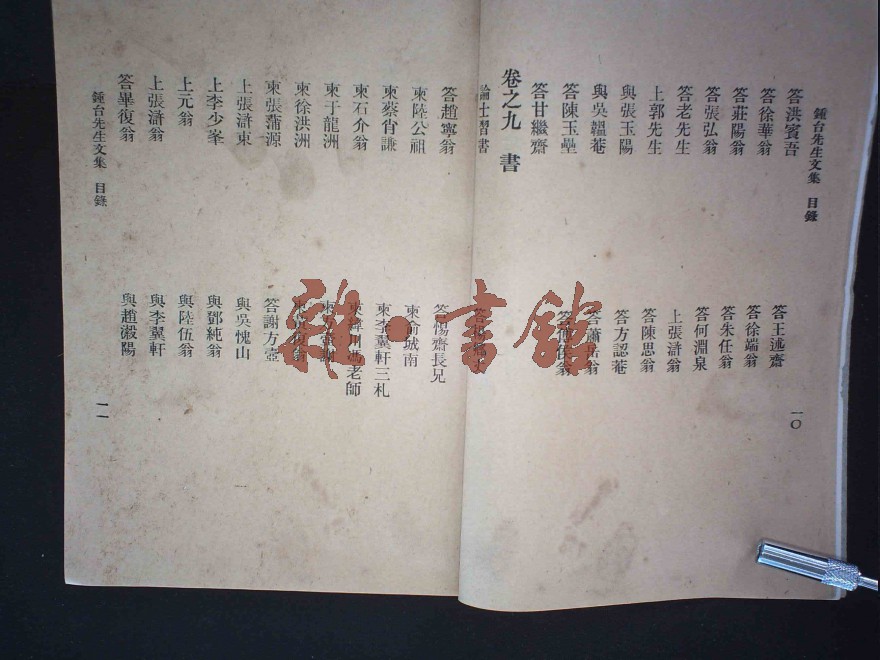 鍾台先生文集 目錄
一〇
答洪賓吾
答王述齋
答徐華翁
答徐端翁
答莊陽翁
答朱任翁
答張弘翁
答何淵泉
答老先生
上張滸翁
上郭先生
答陳思翁
與張玉陽
答方認菴
與吳韞菴
答陳玉壘
答甘繼齋
卷之九 書
論士習書
答趙寧翁
答楊齋長兄
柬陸公祖
柬俞城南
柬蔡肖謙
柬李翼軒三札
柬石介翁
柬于龍洲
柬徐洪洲
柬張蒲源
答謝方壺
上張滸東
與吳愧山
上李少峯
與鄧純翁
上元翁
與陸伍翁
上張滸翁
與李翼軒
答畢復翁
與趙瀔陽
鍾台先生文集 目錄
一一
雜·書館